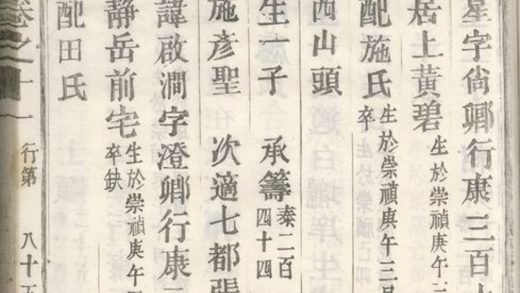 星字尙卿行康三百
居上黃碧生於崇禎庚午
配施氏生於崇禎庚午三月
卒
西山頭
生一子 承籌泰二百
四十四
施彥聖 次適七都張
諱啟澗字澄卿行康二
靜岳前宅生於崇禎庚午
卒缺
配田氏
卷之十一 行第 八十五